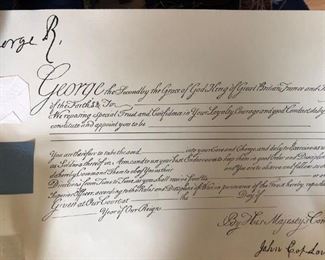 George R.
George the Second by the Grace of God King of Great Britain, France and
of the Faith &c. To
We reposing Special Trust and Confidence in Your Loyalty Courage and good Conduct do
constitute and appoint you to be
You are therefore to take the said into your Care and Charge and duly to Exercise as we
as Soldiers thereof in Arms and to use your best Endeavours to keep them in good Order and Discipline
do hereby Command Them to Obey You as their
Directions from Time to Time as you shall receive from Us
Superior Officer, according to the Rules and Discipline of War in pursuance of the Trust hereby repos
Given at Our Court at the Day of
Year of Our Reign
By His Majesty's Com